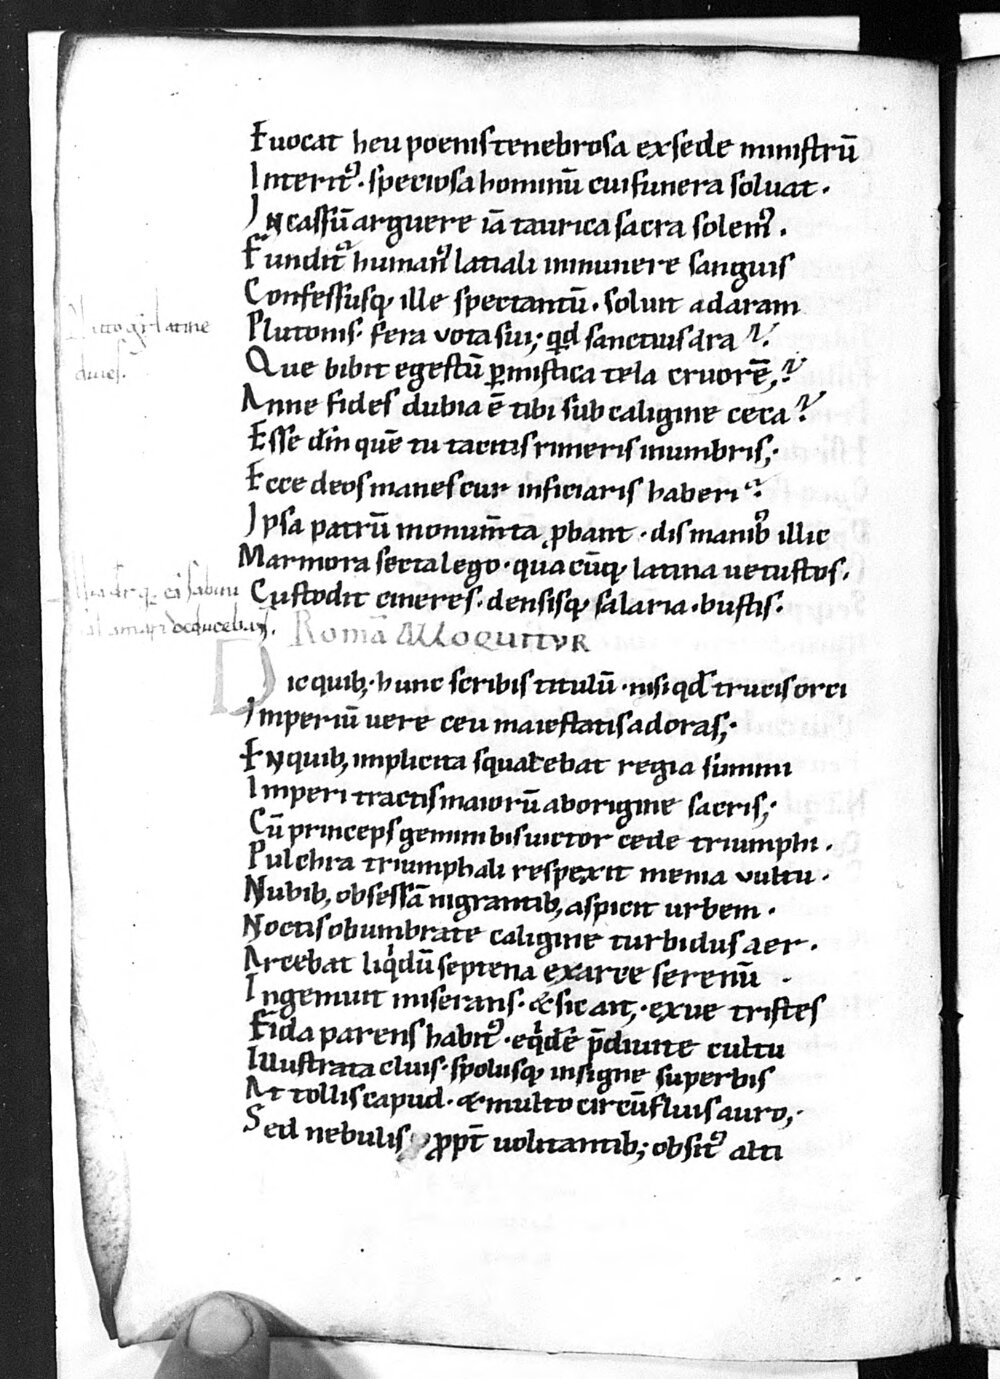 Euocat heu poenis tenebrosa ex sede ministrū
Interit᾽· speciosa hominū cui funera soluat·
Incassū arguere iā taurica sacra solem᾽.
Fundit᾽ human᾽ latiali in munere sanguis
Confessusq; ille spectantū· soluit ad aram
Plutonis· fera vota sui; qd sanctius ara?
Que bibit egestū ꝑ mistica tela cruorē,?
Anne fides dubia ē tibi sub caligine ceca?
Esse dm̄ quē tu tacitis rimeris in umbris;
Ecce deos manes cur inficiaris haberi?
Ipsa patrū monum̄ta ꝓbant· dis manib᾽ illic
Marmora secta lego· qua cūq; latina uetustos·
Custodit cineres· densisq; salaria· bustis.
Romā Alloquitur
Dic quib;· hunc scribis titulū· nisi qd trucis orci
Imperiū uere ceu maiestatis adoras;
En quib; implicita squalebat regia summi
Imperi tractis maiorū ab origine sacris;
Cū princeps gemini bis uictor cede triumphi.
Pulchra triumphali respexit menia vultu.
Nubib; obsessā nigrantib; aspicit urbem·
Noctis obumbrate caligine turbidus aer·
Arcebat liqdū septena ex arce serenū
Ingemuit miserans· & sic ait; exue tristes
Fida parens habit᾽· eqdē p̄diuite cultu
Illustrata cluis· spoliisq; insigne superbis
At tollis capud· & multo circūfluis auro;
Sed nebulis ꝓpt̄ uolitantib; obsit᾽ alti
latine
diues.
sabini